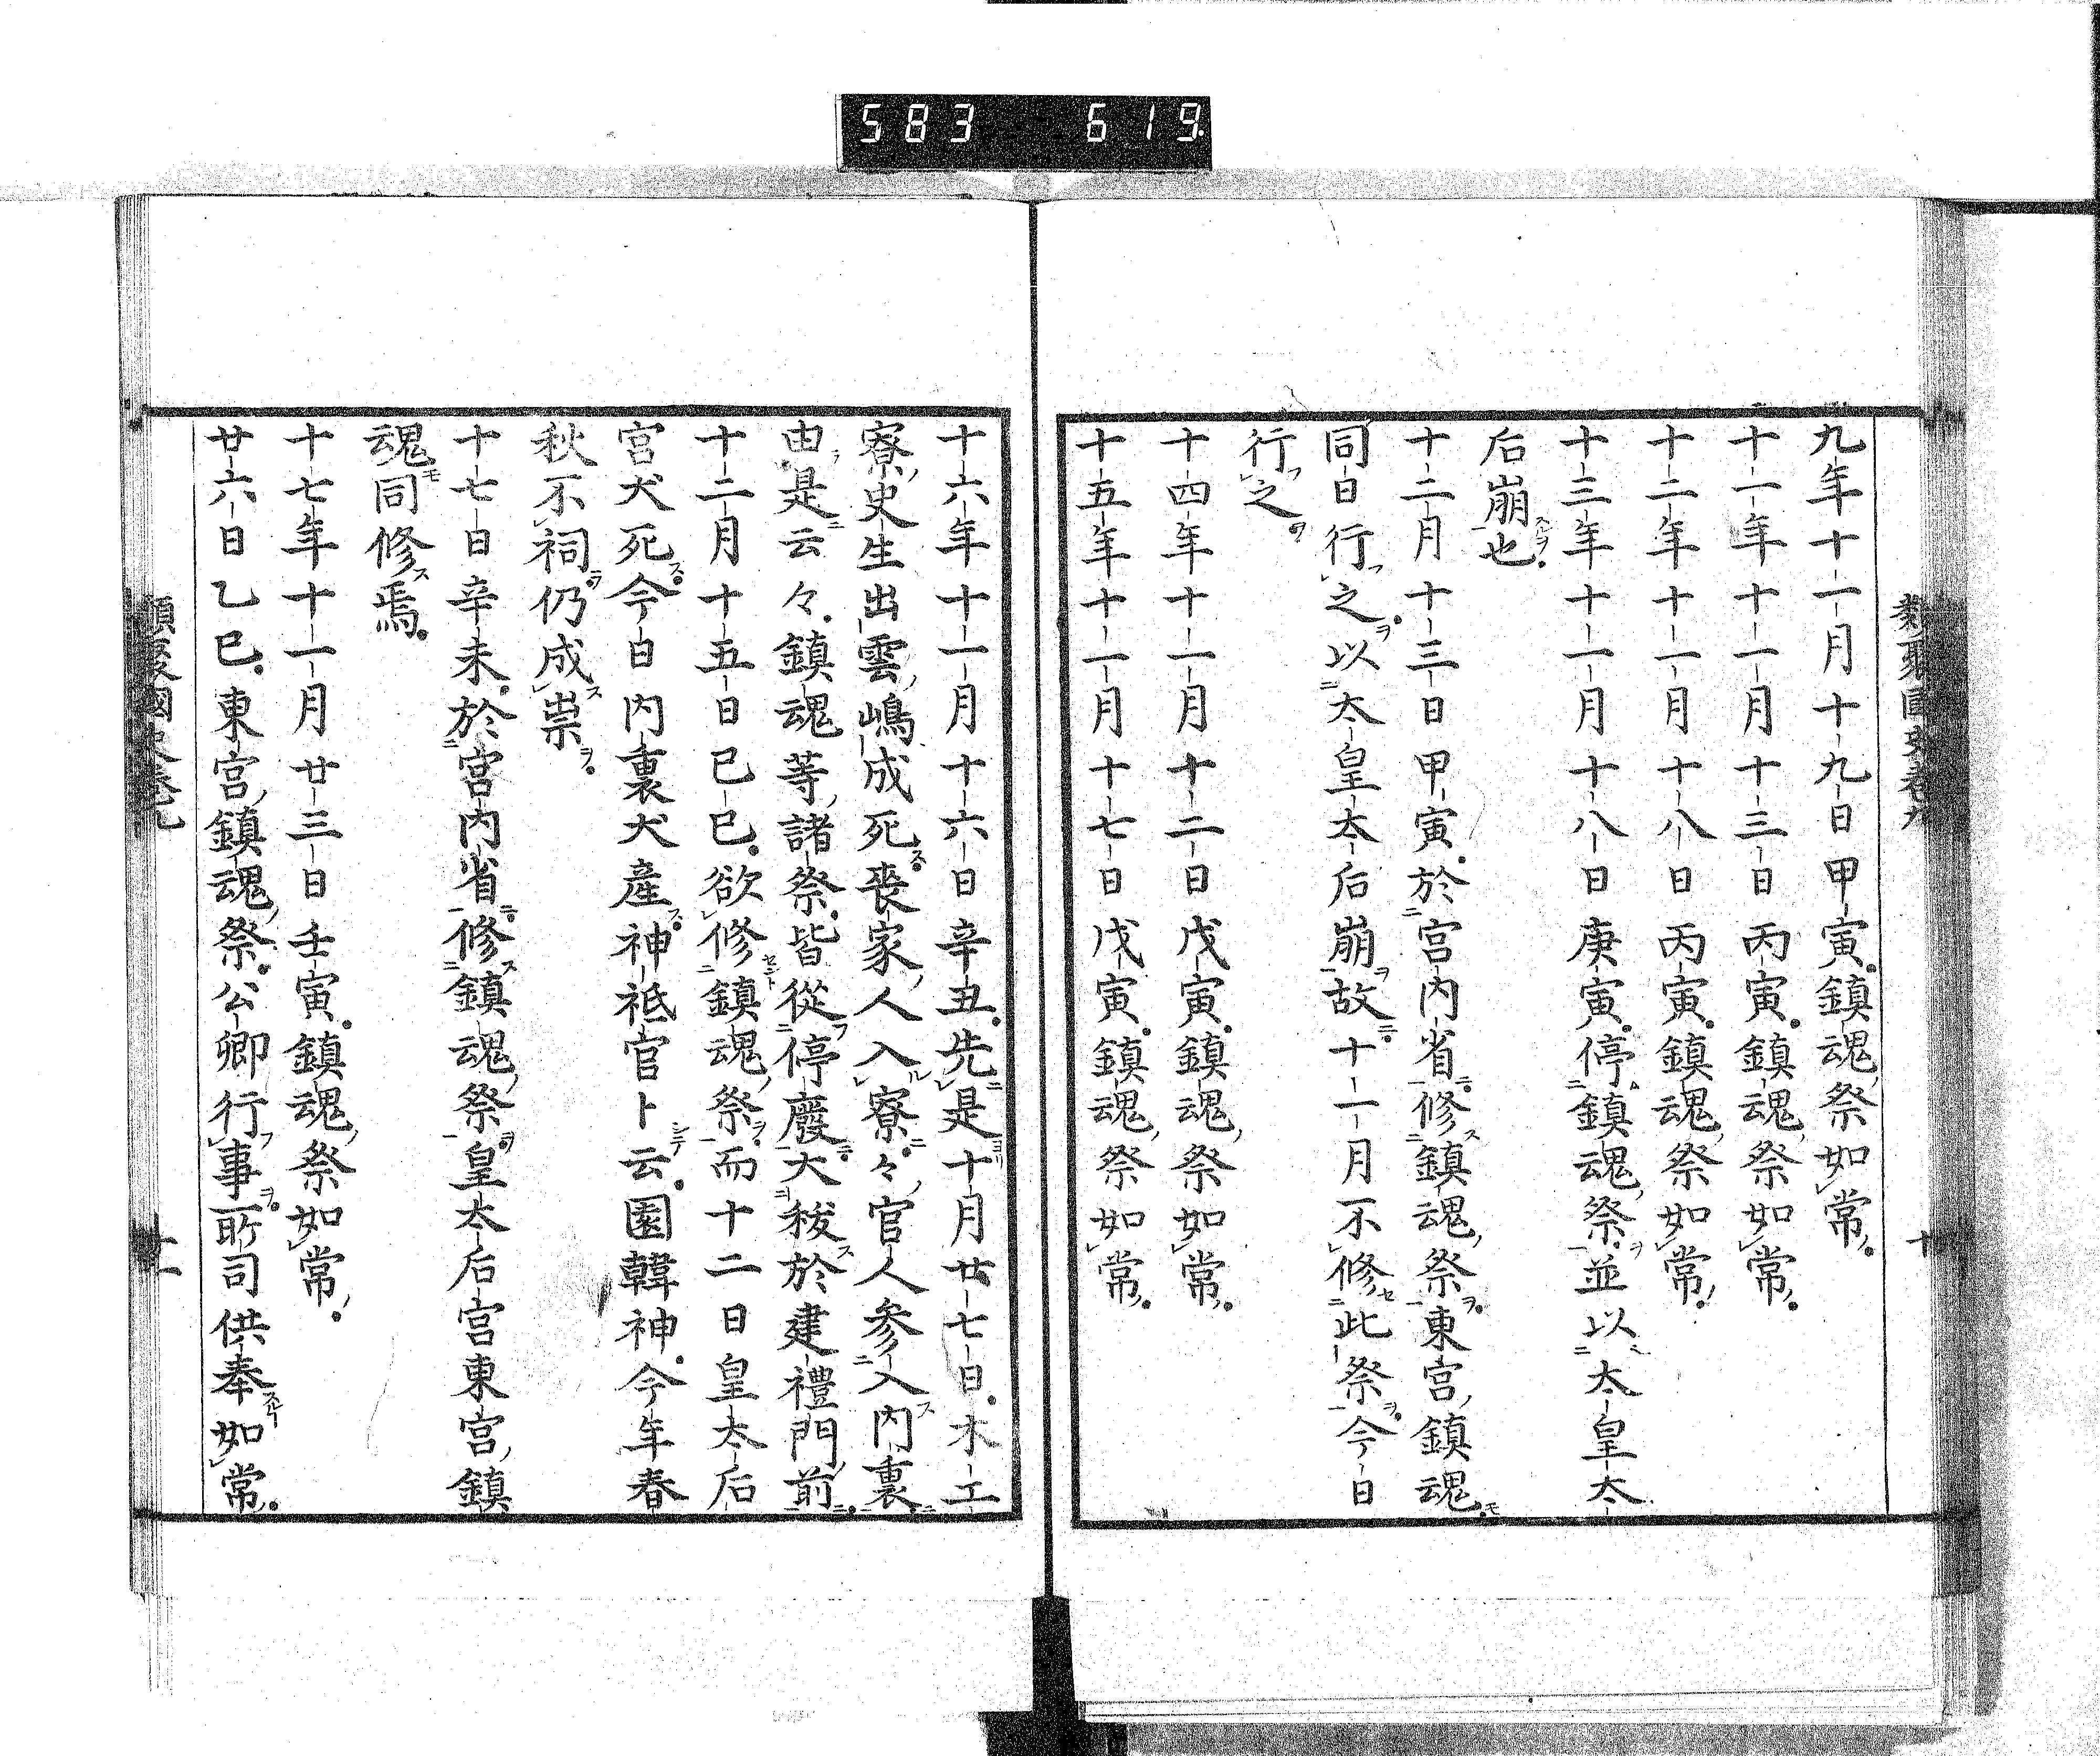 583 619
類聚國史卷九
十
九年十一月十九日甲寅鎮魂祭如常
十一年十一月十三日丙寅鎮魂祭如常
十二年十一月十八日丙寅鎮魂祭如常
十三年十一月十八日庚寅停鎮魂祭並以太皇太
后崩也
十二月十三日甲寅於宮内省修鎮魂祭東宮鎮魂
同日行之以太皇太后崩故十一月不修此祭今日
行之
十四年十一月十二日戊寅鎮魂祭如常
十五年十一月十七日戊寅鎮魂祭如常
十六年十一月十六日辛丑先是十月廿七日木工
寮史生出雲嶋成死喪家人入寮々官人参入内裏
由是云々鎮魂等諸祭皆從停廢大秡於建禮門前
十二月十五日己巳欲修鎮魂祭而十二日皇太后
宮犬死今日内裏犬産神祇官卜云園韓神今年春
秋不祠仍成祟
十七日辛未於宮内省修鎮魂祭皇太后宮東宮鎮
魂同修焉
十七年十一月廿三日壬寅鎮魂祭如常
廿六日乙巳東宮鎮魂祭公卿行事所司供奉如常
類聚國史卷九
十一